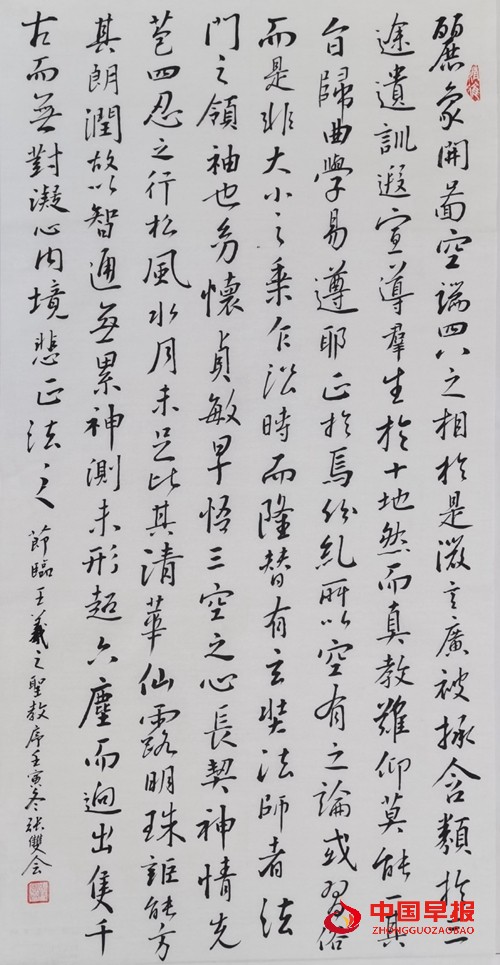 麗象開啚空端四八之相於是微言廣被拯含類於三
途遺訓遐宣導羣生於十地然而真教難仰莫能一其
旨歸曲學易遵耶正於焉紛糺所以空有之論或習俗
而是非大小之乘乍沿時而隆替有玄奘法師者法
門之領袖也幼懷貞敏早悟三空之心長契神情先
苞四忍之行松風水月未足比其清華仙露明珠詎能方
其朗潤故以智通無累神測未形超六塵而迥出隻千
古而無對凝心內境悲正法之
節臨王羲之聖教序壬寅冬張雙会
中国早报
ZHONGGUOZAOBAO